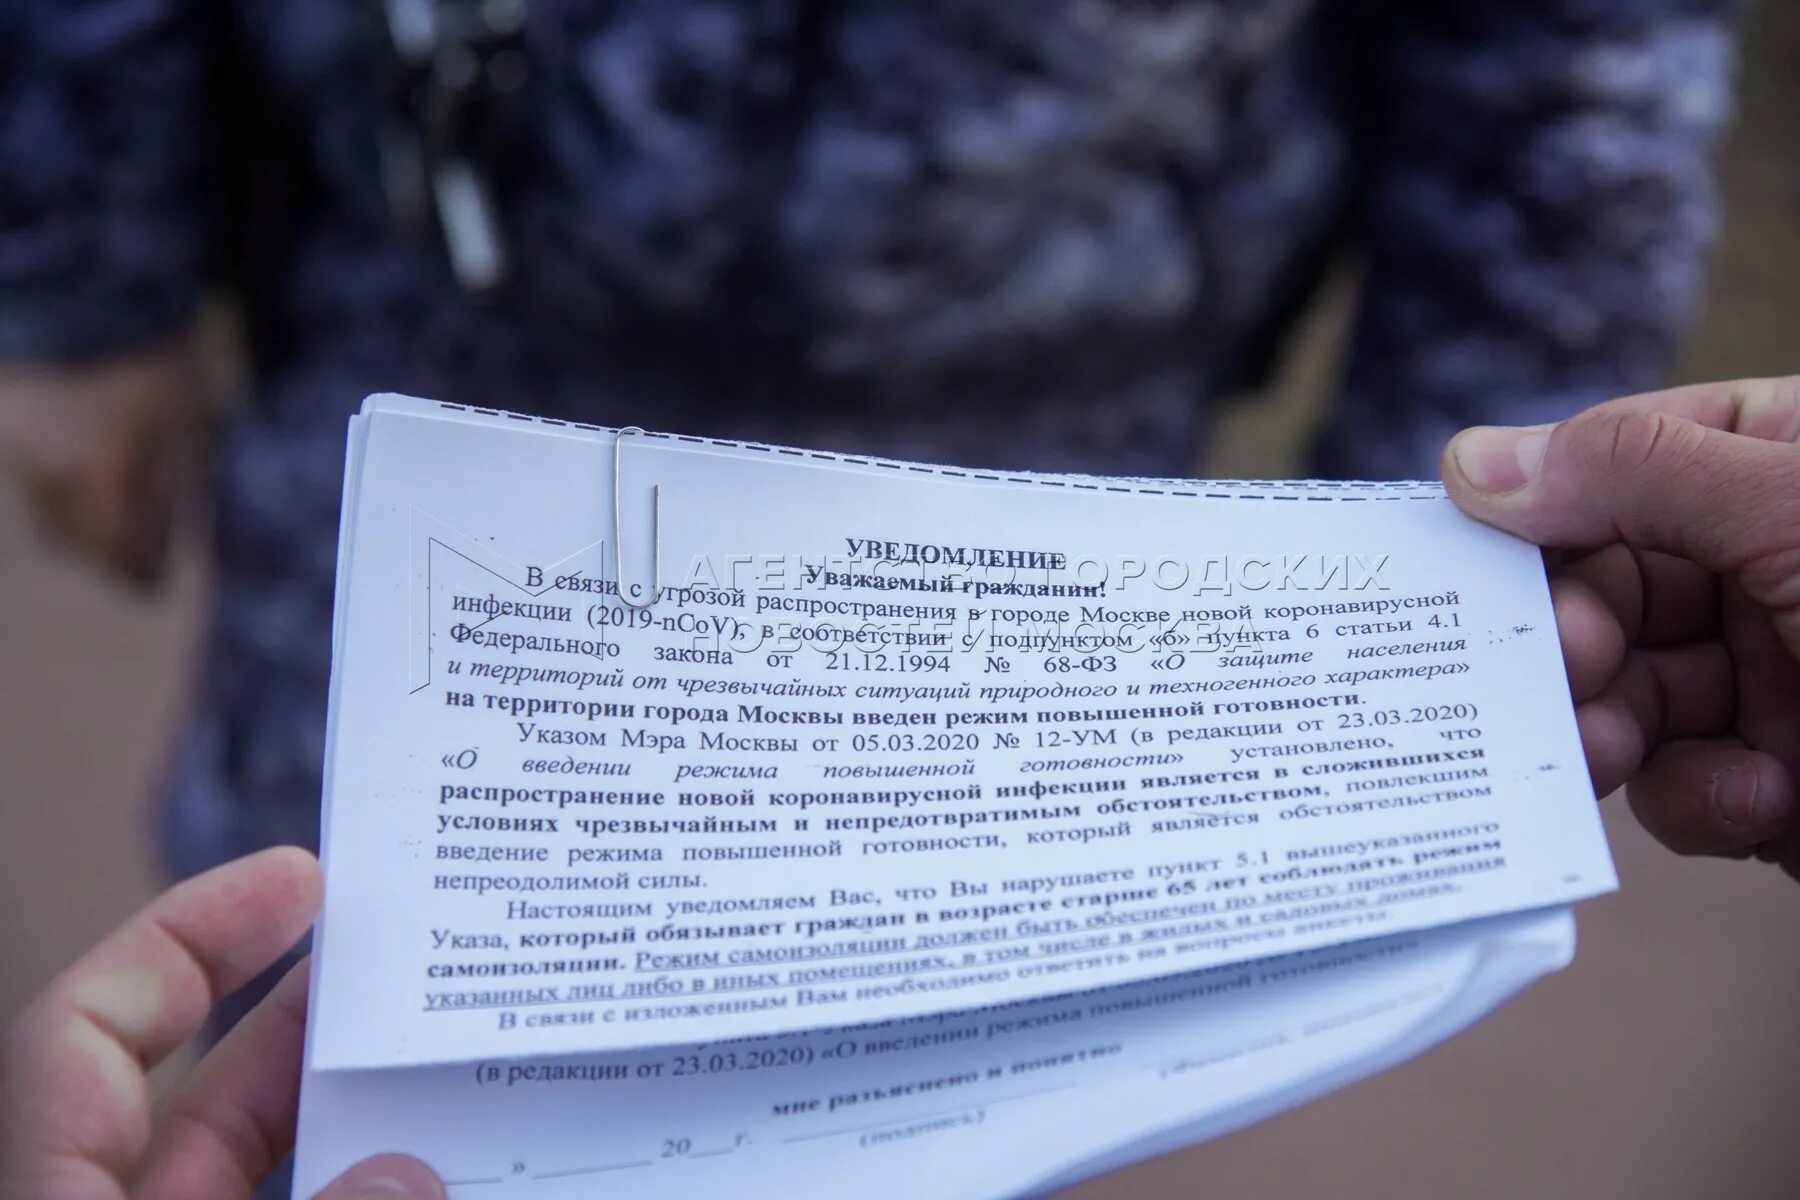 УВЕДОМЛЕНИЕ
Уважаемый гражданин!
В связи с угрозой распространения в городе Москве новой коронавирусной
инфекции (2019-nCoV), в соответствии с подпунктом «б» пункта 6 статьи 4.1
Федерального закона от 21.12.1994 № 68-ФЗ «О защите населения
и территорий от чрезвычайных ситуаций природного и техногенного характера»
на территории города Москвы введен режим повышенной готовности.
Указом Мэра Москвы от 05.03.2020 № 12-УМ (в редакции от 23.03.2020)
«О введении режима повышенной готовности» установлено, что
распространение новой коронавирусной инфекции является в сложившихся
условиях чрезвычайным и непредотвратимым обстоятельством, повлекшим
введение режима повышенной готовности, который является обстоятельством
непреодолимой силы.
Настоящим уведомляем Вас, что Вы нарушаете пункт 5.1 вышеуказанного
Указа, который обязывает граждан в возрасте старше 65 лет соблюдать режим
самоизоляции. Режим самоизоляции должен быть обеспечен по месту проживания
указанных лиц либо в иных помещениях, в том числе в жилых и садовых домах.
В связи с изложенным Вам необходимо ответить на вопросы анкеты.
(в редакции от 23.03.2020) «О введении режима повышенной готовности»
мне разъяснено и понятно
» 20 г.
(подпись)
АГЕНТСТВО ГОРОДСКИХ
НОВОСТЕЙ МОСКВА